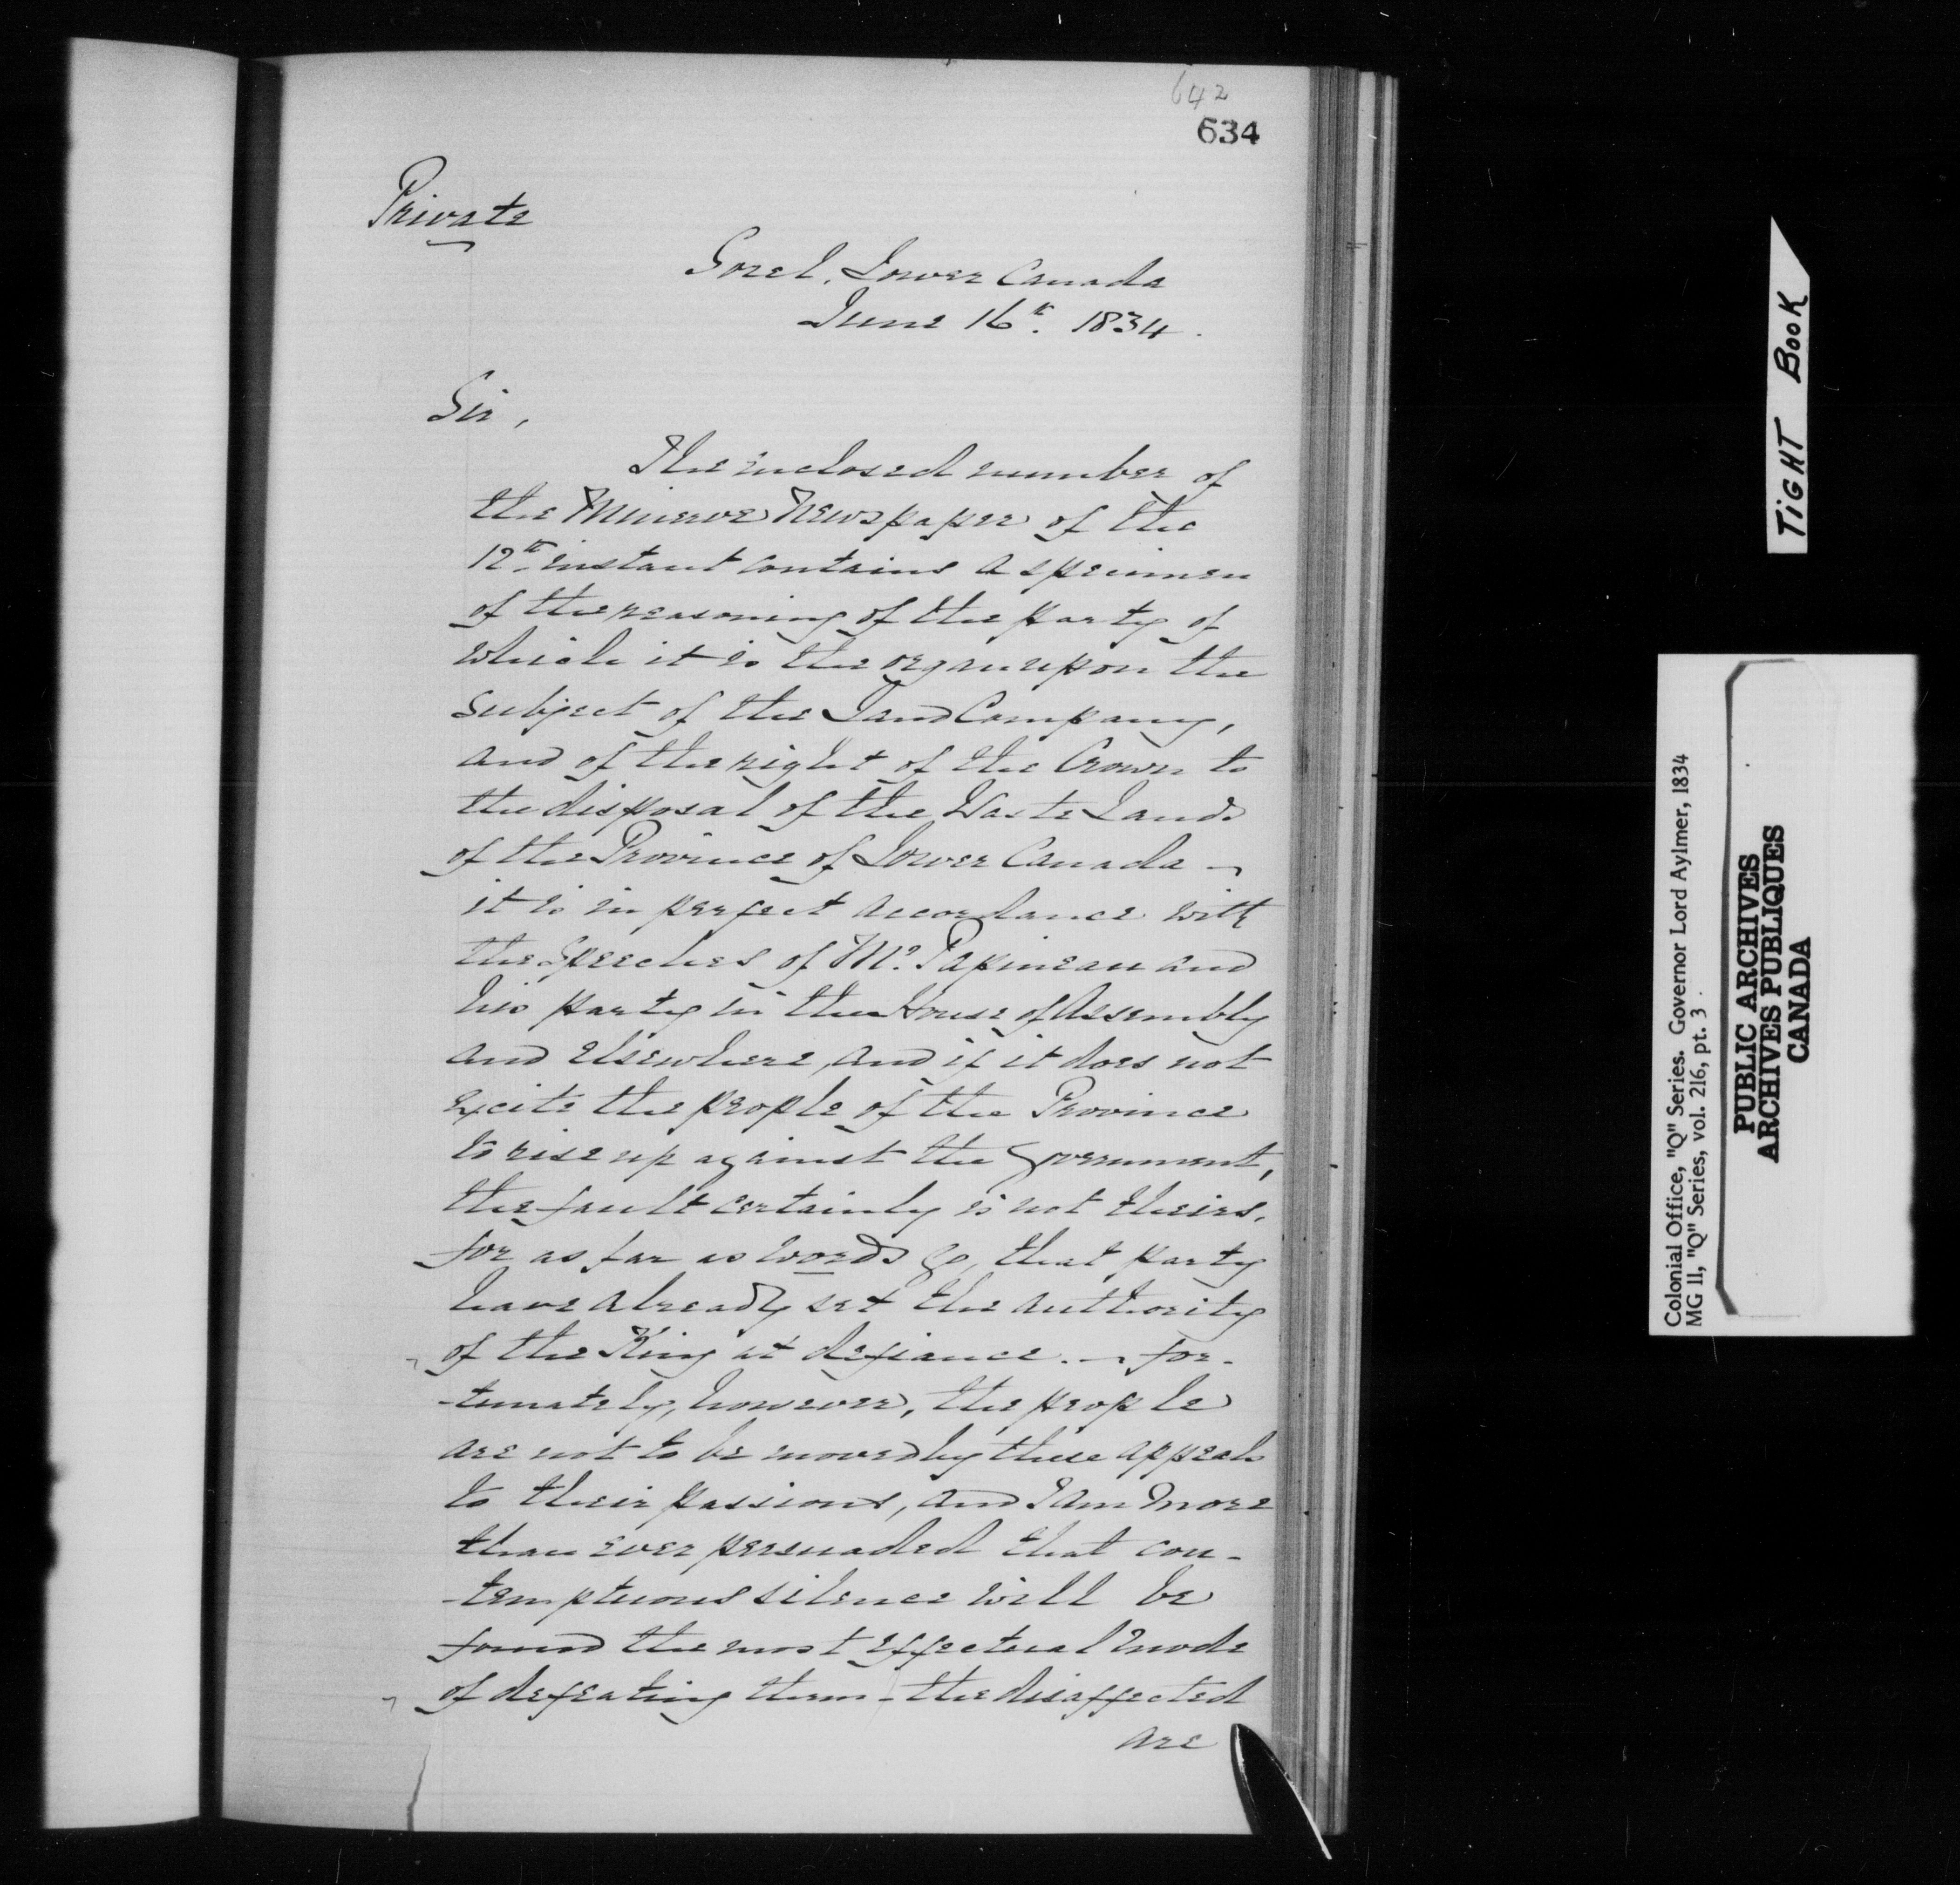 642
634
Private
Sorel, Lower Canada
June 16th. 1834.
Sir,
The inclosed number of
the Minerve Newspaper of the
12th instant contains a specimen
of the reasoning of the party of
which it is the organ upon the
subject of the Land Company,
and of the right of the Crown to
the disposal of the Waste Lands
of the Province of Lower Canada —
it is in perfect accordance with
the Speeches of Mr. Papineau and
his party in the House of Assembly
and elsewhere, and if it does not
excite the people of the Province
to rise up against the Government,
the fault certainly is not theirs,
for as far as words go, that party
have already set the authority
of the King at defiance. — for-
-tunately, however, the people
are not to be moved by these appeals
to their passions, and I am more
than ever persuaded that con-
-temptuous silence will be
found the most effectual mode
of defeating them - the disaffected
are
TIGHT BOOK
Colonial Office, "Q" Series. Governor Lord Aylmer, 1834
MG 11, "Q" Series, vol. 216, pt. 3
PUBLIC ARCHIVES
ARCHIVES PUBLIQUES
CANADA